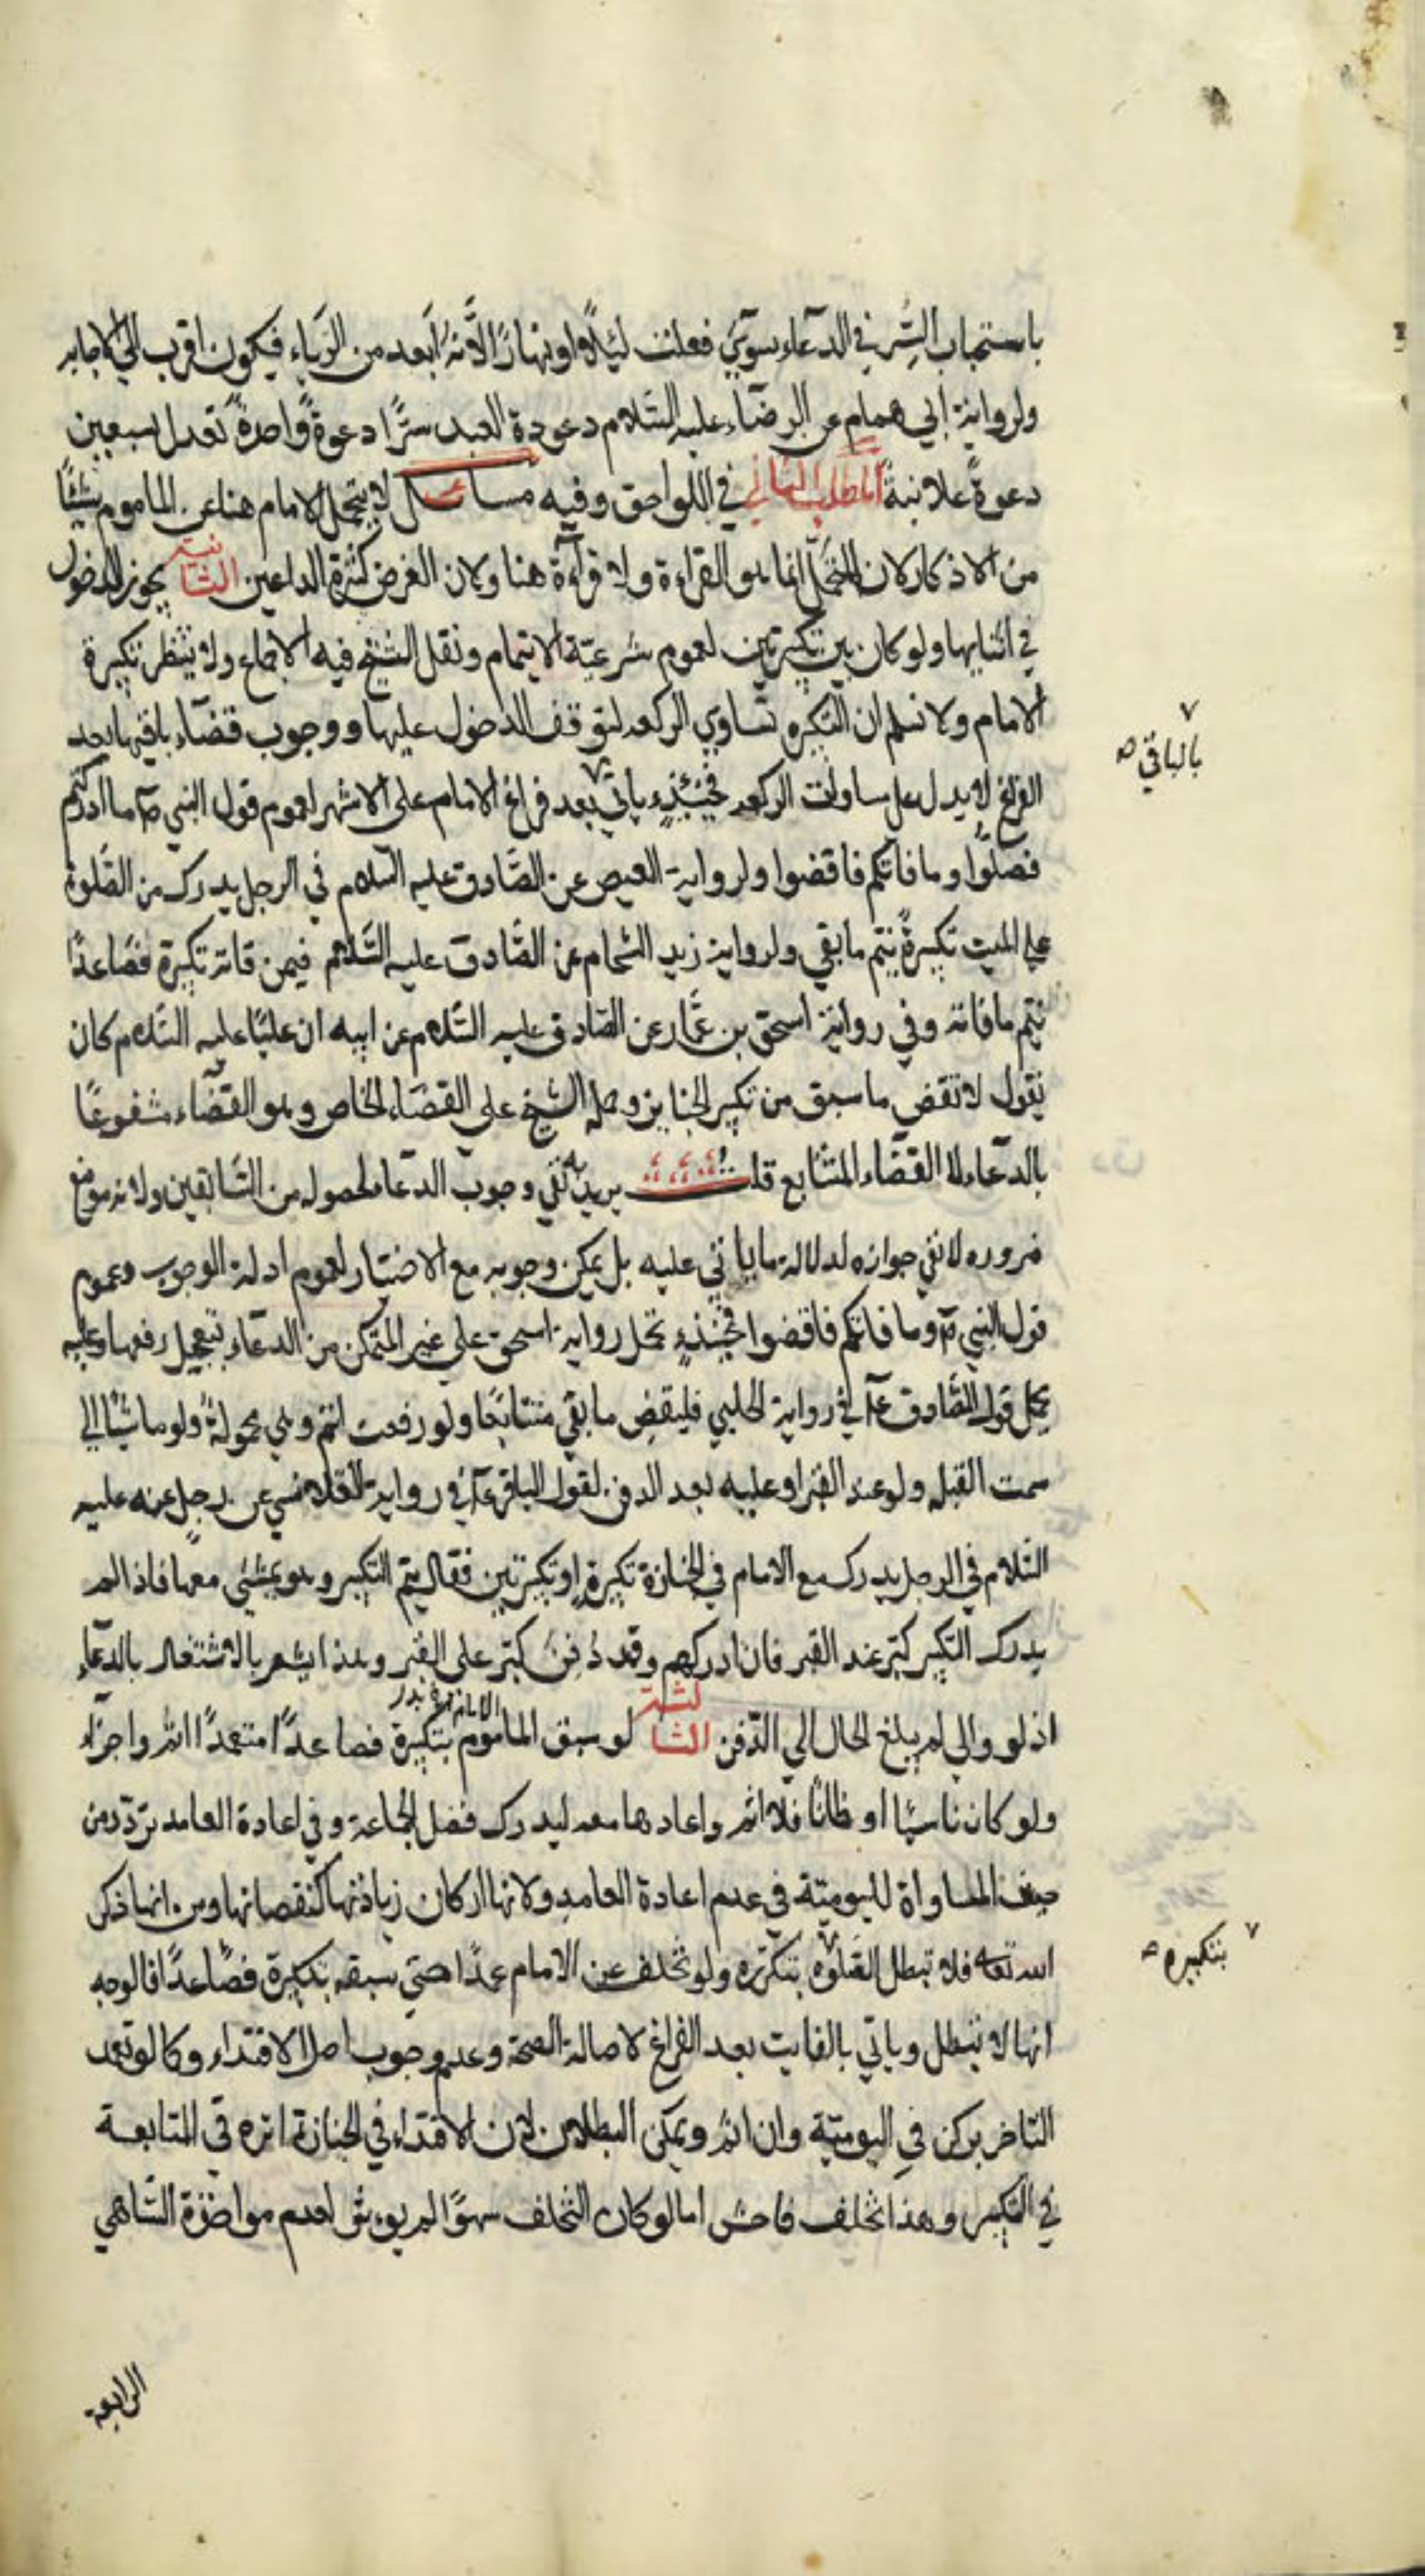 باستحباب السّر في الدعاء سوآء فعلت ليلًا او نهارًا لأنّه أبعد من الرياء فيكون اقرب الي الاجابه
ولرواية ابي همام عن الرضاء عليه السّلام دعوة العبد سرًّا دعوةً واحدةً تعدل سبعين
دعوةً علانيةً المطلب الثاني في اللواحق وفيه مسائل لا يتحمل الامام هنا عن الماموم شيئًا
من الاذكار لان التحمّل انما هو القراءة ولا قرآءة هنا ولان الغرض كثرة الداعين الثانية يجوز الدخول
في اثنايها ولو كان بين تكبيرتين لعموم شرعيّة الايتمام ونقل الشيخ فيه الاجماع ولا ينتظر تكبيرة
الامام ولا نسلم ان التكبيره تساوي الركعه ليتوقف الدخول عليها ووجوب قضآء باقيها بعد
الفراغ لا يدل علي مساواة الركعه فحينئذٍ ياتي بعد فراغ الامام علي الاشهر لعموم قول النبي ص ما ادركتم
فصلّوا وما فاتكم فاقضوا ولرواية العيص عن الصّادق عليه السّلام في الرجل يدرك من الصّلوة
علي الميت تكبيرةً يتم ما بقي ولرواية زيد الشحام عن الصّادق عليه السّلام فيمن فاته تكبيرة فصاعدًا
يتم ما فاته وفي رواية اسحق بن عمّار عن الصّادق عليه السّلام عن ابيه ان عليًا عليه السّلام كان
يقول لا تقض ما سبق من تكبير الجنايز وحمله الشيخ علي القضآء الخاص وهو القضاء مشفوعًا
بالدعاء لا القضاء المتتابع قلت يريد به نفي وجوب الدعاء لحصوله من السّابقين ولانه موضع
ضروره لا نفي جوازه لدلالة ما ياتي عليه بل يمكن وجوبه مع الاختيار لعموم ادلة الوجوب وعموم
قول النبي ص وما فاتكم فاقضوا فحينئذٍ تحمل رواية اسحق علي غير المتمكن من الدعاء بتعجيل رفعها وعليه
يحمل قول الصّادق ع في رواية الحلبي فليقض ما بقي متتابعًا ولو رفعت اتم وهي محمولةً ولو ماشيًا الي
سمت القبله ولو عند القبر او عليه بعد الدفن لقول الباقر ع في رواية القلانسي عن رجل عنه عليه
السّلام في الرجل يدرك مع الامام في الجنازة تكبيرة او تكبيرتين فقال يتم التكبير وهو يمشي معها فاذا لم
يدرك التكبير كبّر عند القبر فان ادركهم وقد دُفن كبّر علي القبر وهذا يشعر بالاشتغال بالدعاء
اذ لو والي لم يبلغ الحال الي الدّفن الثالثة لو سبق الماموم الامام بتكبيرة فصاعدًا متعمدًا اثم واجزاء
ولو كان ناسيًا او ظانًا فلا اثم واعادها معه ليدرك فضل الجماعة وفي اعادة العامد تردّد من
حيث المساواة لليوميّة في عدم اعادة العامد ولانها اركان زيادتها كنقصانها ومن انها ذكر
الله تعالي فلا تبطل الصّلوة بتكرّره ولو تخلف عن الامام عمدًا حتي سبقه بتكبيرة فصاعدًا فالوجه
انها لا تبطل وياتي بالفايت بعد الفراغ لاصالة الصحة وعدم وجوب اصل الاقتداء وكما لو تعمد
التاخر بركن في اليوميّة وان اثم ويمكن البطلان لان الاقتداء في الجنازة اثره في المتابعة
في التكبير وهذا تخلف فاحش اما لو كان التخلف سهوًا لم يوءثر لعدم مواخذة السّاهي
الرابعة
٧
بالباقي ص
٧ بتكبيره ص